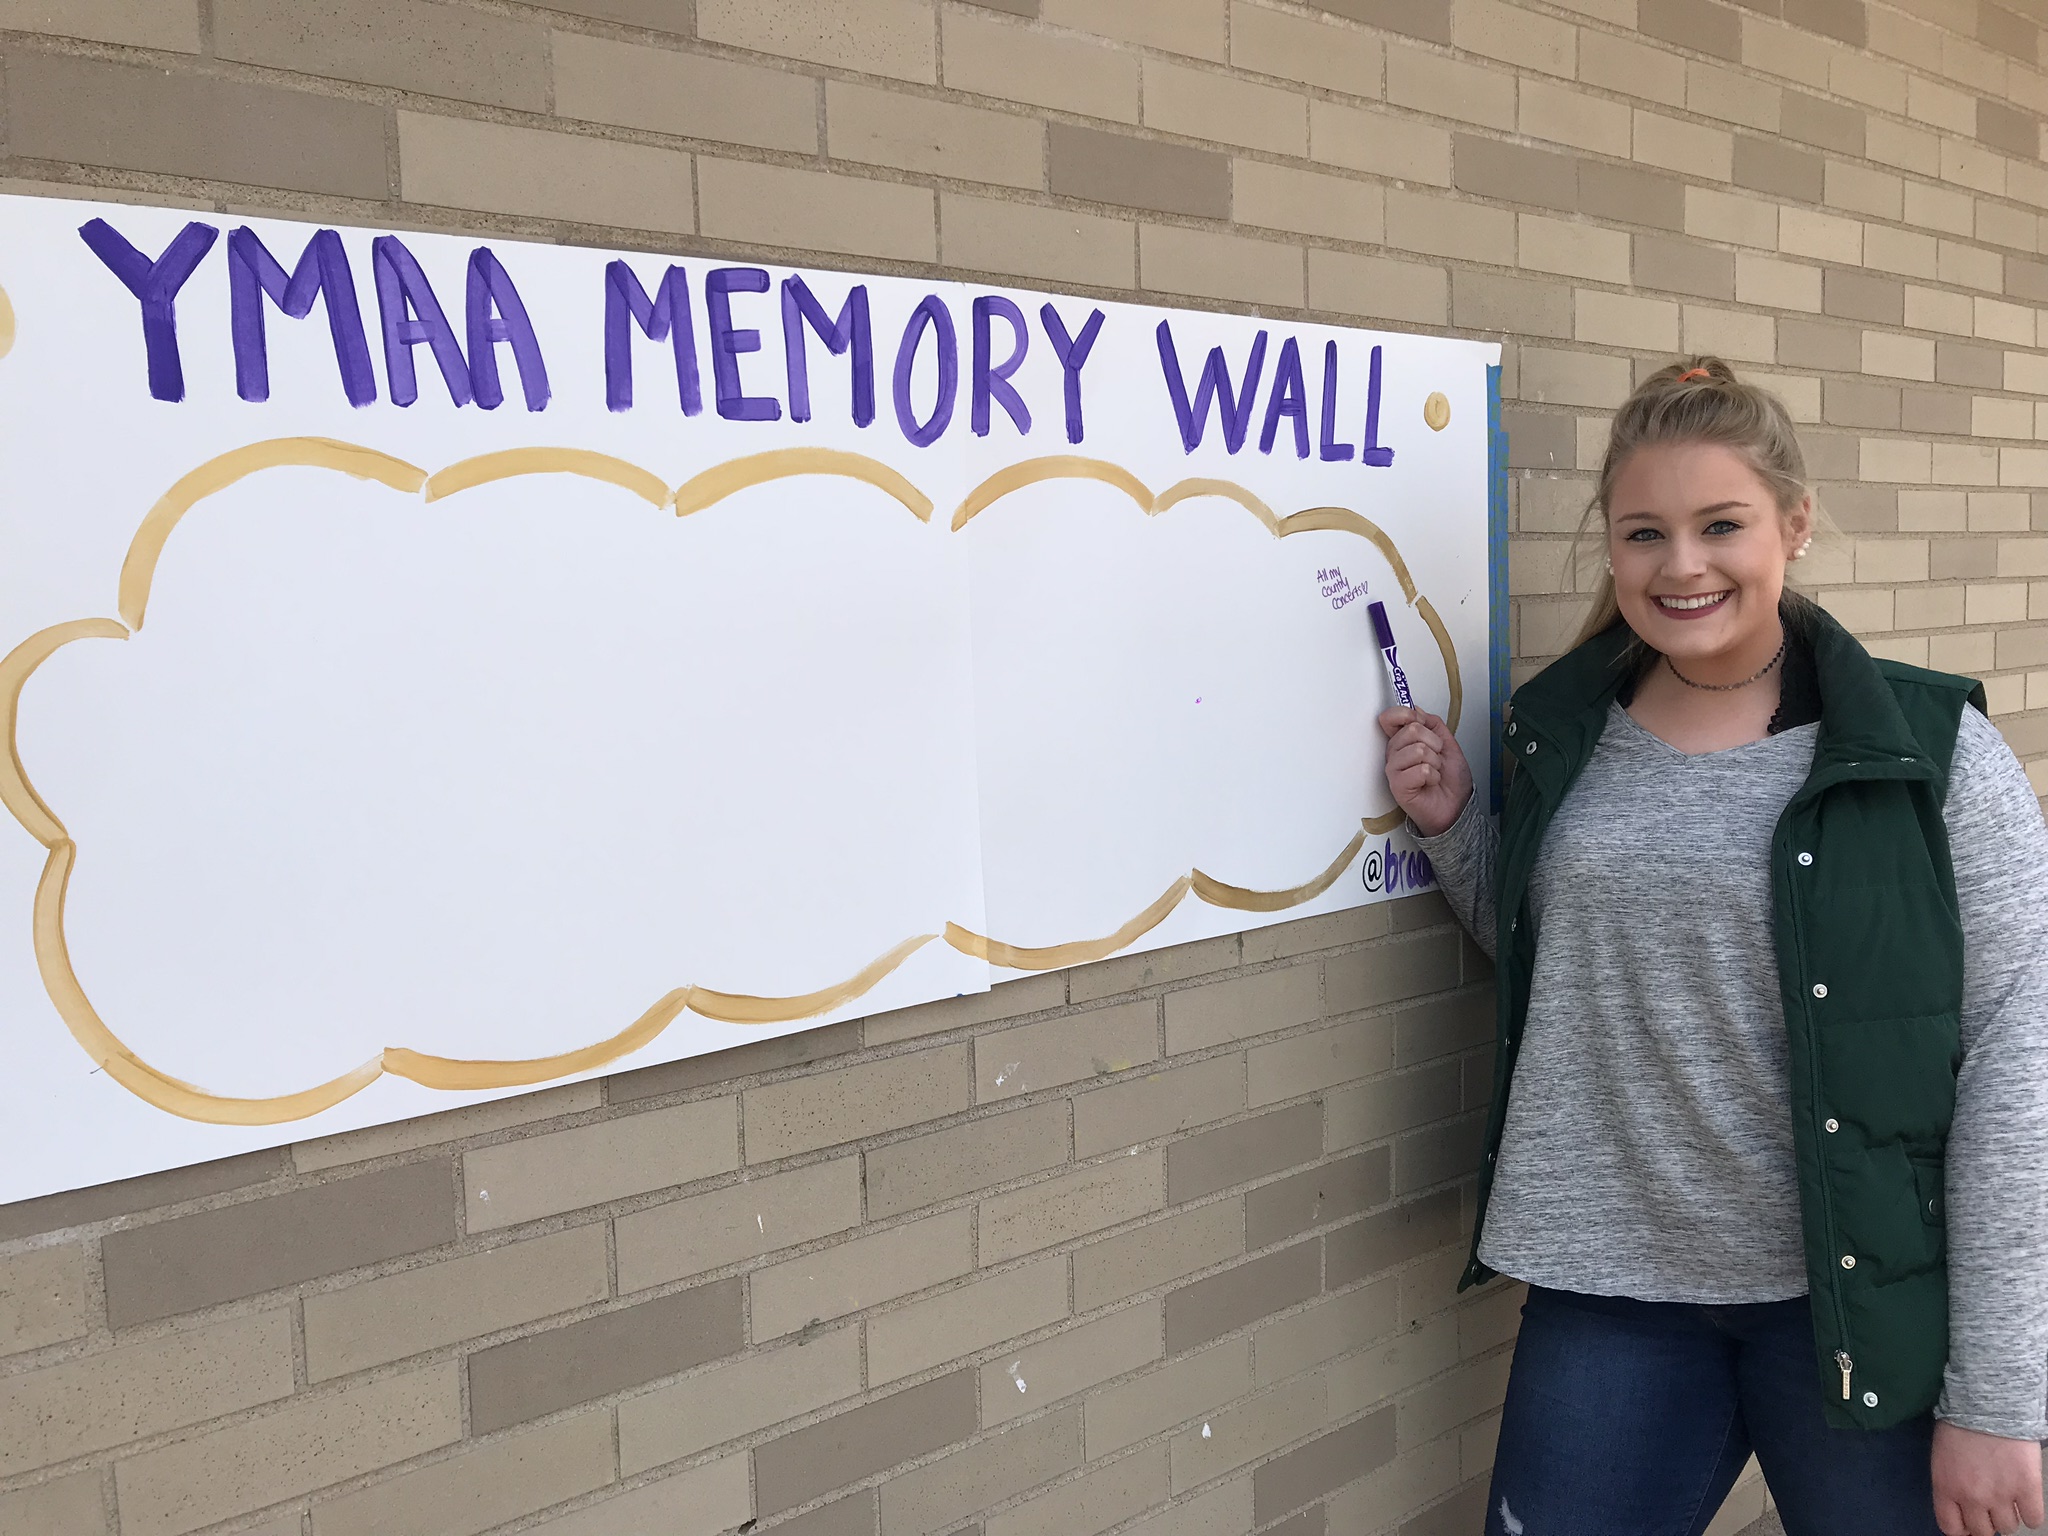 YMAA MEMORY WALL
All my
country
concerts♡